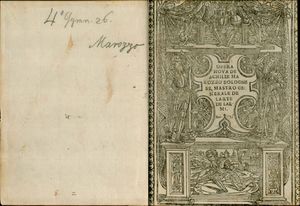 4° Gymn. 26.
Marozzo
OPERA
NOVA DE
ACHILLE MA
ROZZO BOLOGNE
SE, MASTRO GE
NERALE DE
L'ARTE
DE L'AR
MI